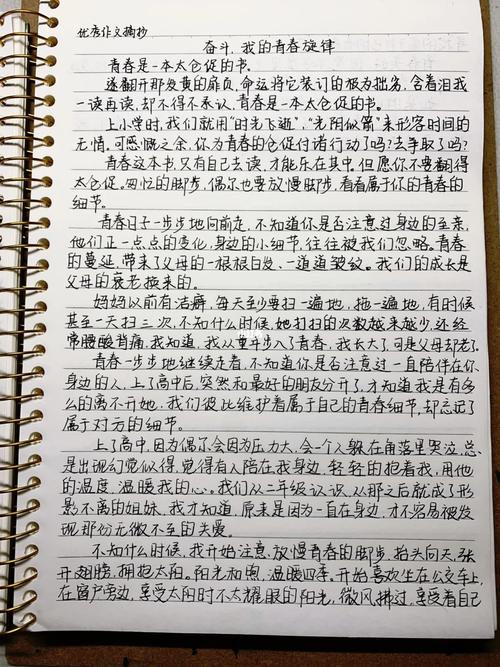 优秀作文摘抄
奋斗,我的青春旋律
青春是一本太仓促的书。
逐翻开那发黄的扉页,命运将它装订的极为拙劣,含着泪我
一读再读,却不得不承认,青春是一本太仓促的书。
上小学时,我们就用“时光飞逝”,“光阴似箭”来形容时间的
无情,可感慨之余,你为青春的仓促付诸行动了吗?去争取了吗?
青春这本书,只有自己去读,才能乐在其中,但愿你不要翻得
太仓促。匆忙的脚步,偶尔也要放慢脚步,看看属于你的青春的
细节。
青春日子一步步地向前走,不知道你是否注意过身边的至亲,
他们正一点点的变化,身边的小细节,往往被我们忽略。青春
的蔓延,带来了父母的一根根白发、一道道皱纹。我们的成长是
父母的衰老换来的。
妈妈以前有洁癖,每天至少要扫一遍地,拖一遍地,有时候
甚至一天扫三次,不知什么时候,她打扫的次数越来越少,还经
常腰酸背痛,我知道,我从童年步入了青春,我长大了,可是父母却老了
青春一步步地继续走着,不知道你是否注意过一直陪伴在你
身边的人,上了高中后,突然和最好的朋友分开了,才知道我是有多
么的离不开她,我们彼此维护着属于自己的青春细节,却忘记了
属于对方的细节。
上了高中,因为偶尔会因为压力大,会一个人躲在角落里哭泣,总
是出现幻觉似得,觉得有人陪在我身边,轻轻的抱着我,用他
的温度,温暖我的心。我们从二年级认识,从那之后就成了形
影不离的姐妹,我才知道,原来是因为一直在身边,才不容易被发
现那份无微不至的关爱。
不知什么时候,我开始注意,放慢青春的脚步,抬头向天,张
开翅膀,拥抱太阳。阳光和煦,温暖四季。开始喜欢坐在公交车上,
在窗户旁边,享受太阳时不太耀眼的阳光,微风拂过,享受着自己